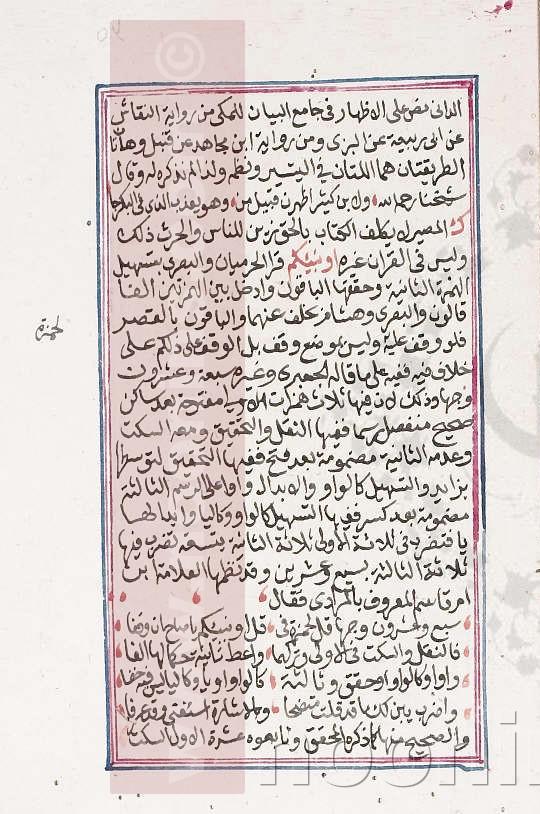 الدانى نص على الاظهار فى جامع البيان للمكى من رواية النقاش
عن ابى ربيعة عن البزى ومن رواية ابن مجاهد عن قنبل وهاتان
الطريقتان هما اللتان فى التيسير ونظمه ولذا لم نذكره له وقال
شيخنا رحمه الله ولابن كثير اظهرن قبيل من وهو يعذب الذى فى البكر
المصير الكتاب بالحق زين للناس والحرث ذلك
وليس فى القران غيره اونبئكم قرا الحرميان والبصرى بتسهيل
الهمزة الثانية وحققها الباقون وادخل بين الهمزتين الفا
قالون والبصرى وهشام بخلف عنهما والباقون بالقصر
فلو وقف عليه وليس بموضع وقف بل الوقف على ذلكم على
خلاف فيه ففيه على ما قاله الجعبرى وغيره سبعة وعشرون
وجها وذلك لان فيها ثلاث همزات الاولى مفتوحة بعد ساكن
صحيح منفصل رسما ففيها النقل والتحقيق ومعه السكت
وعدمه الثانية مضمومة بعد فتح ففيها التحقيق لتوسطها
بزايد والتسهيل كالواو والابدال واوا على الرسم الثالثة
مضمومة بعد كسر ففيها التسهيل كالواو وكاليا وابدالها
يا فتضرب فى ثلاثة الاولى ثلاثة الثانية بتسعة تضرب فيها
ثلاثة الثالثة بسبع وعشرين وقد نظمها العلامة ابن
ام قاسم المعروف بالمرادى فقال
سبع وعشرون وجها قل لحمزة فى قل اونبئكم يا صاح ان وقفا
فالنقل والسكت فى الاولى وتركهما واعط ثانية حكما لها الفا
واوا وكالواو او حقق وثالثة كالواو او يا وكاليا ليس فيه خفا
واضرب يبن لك ما قد قلت متضحا وبالاشارة استغنى وقد عرفا
والصحيح منها كما ذكره المحقق وتابعوه عشرة الاول السكت
لحمزة